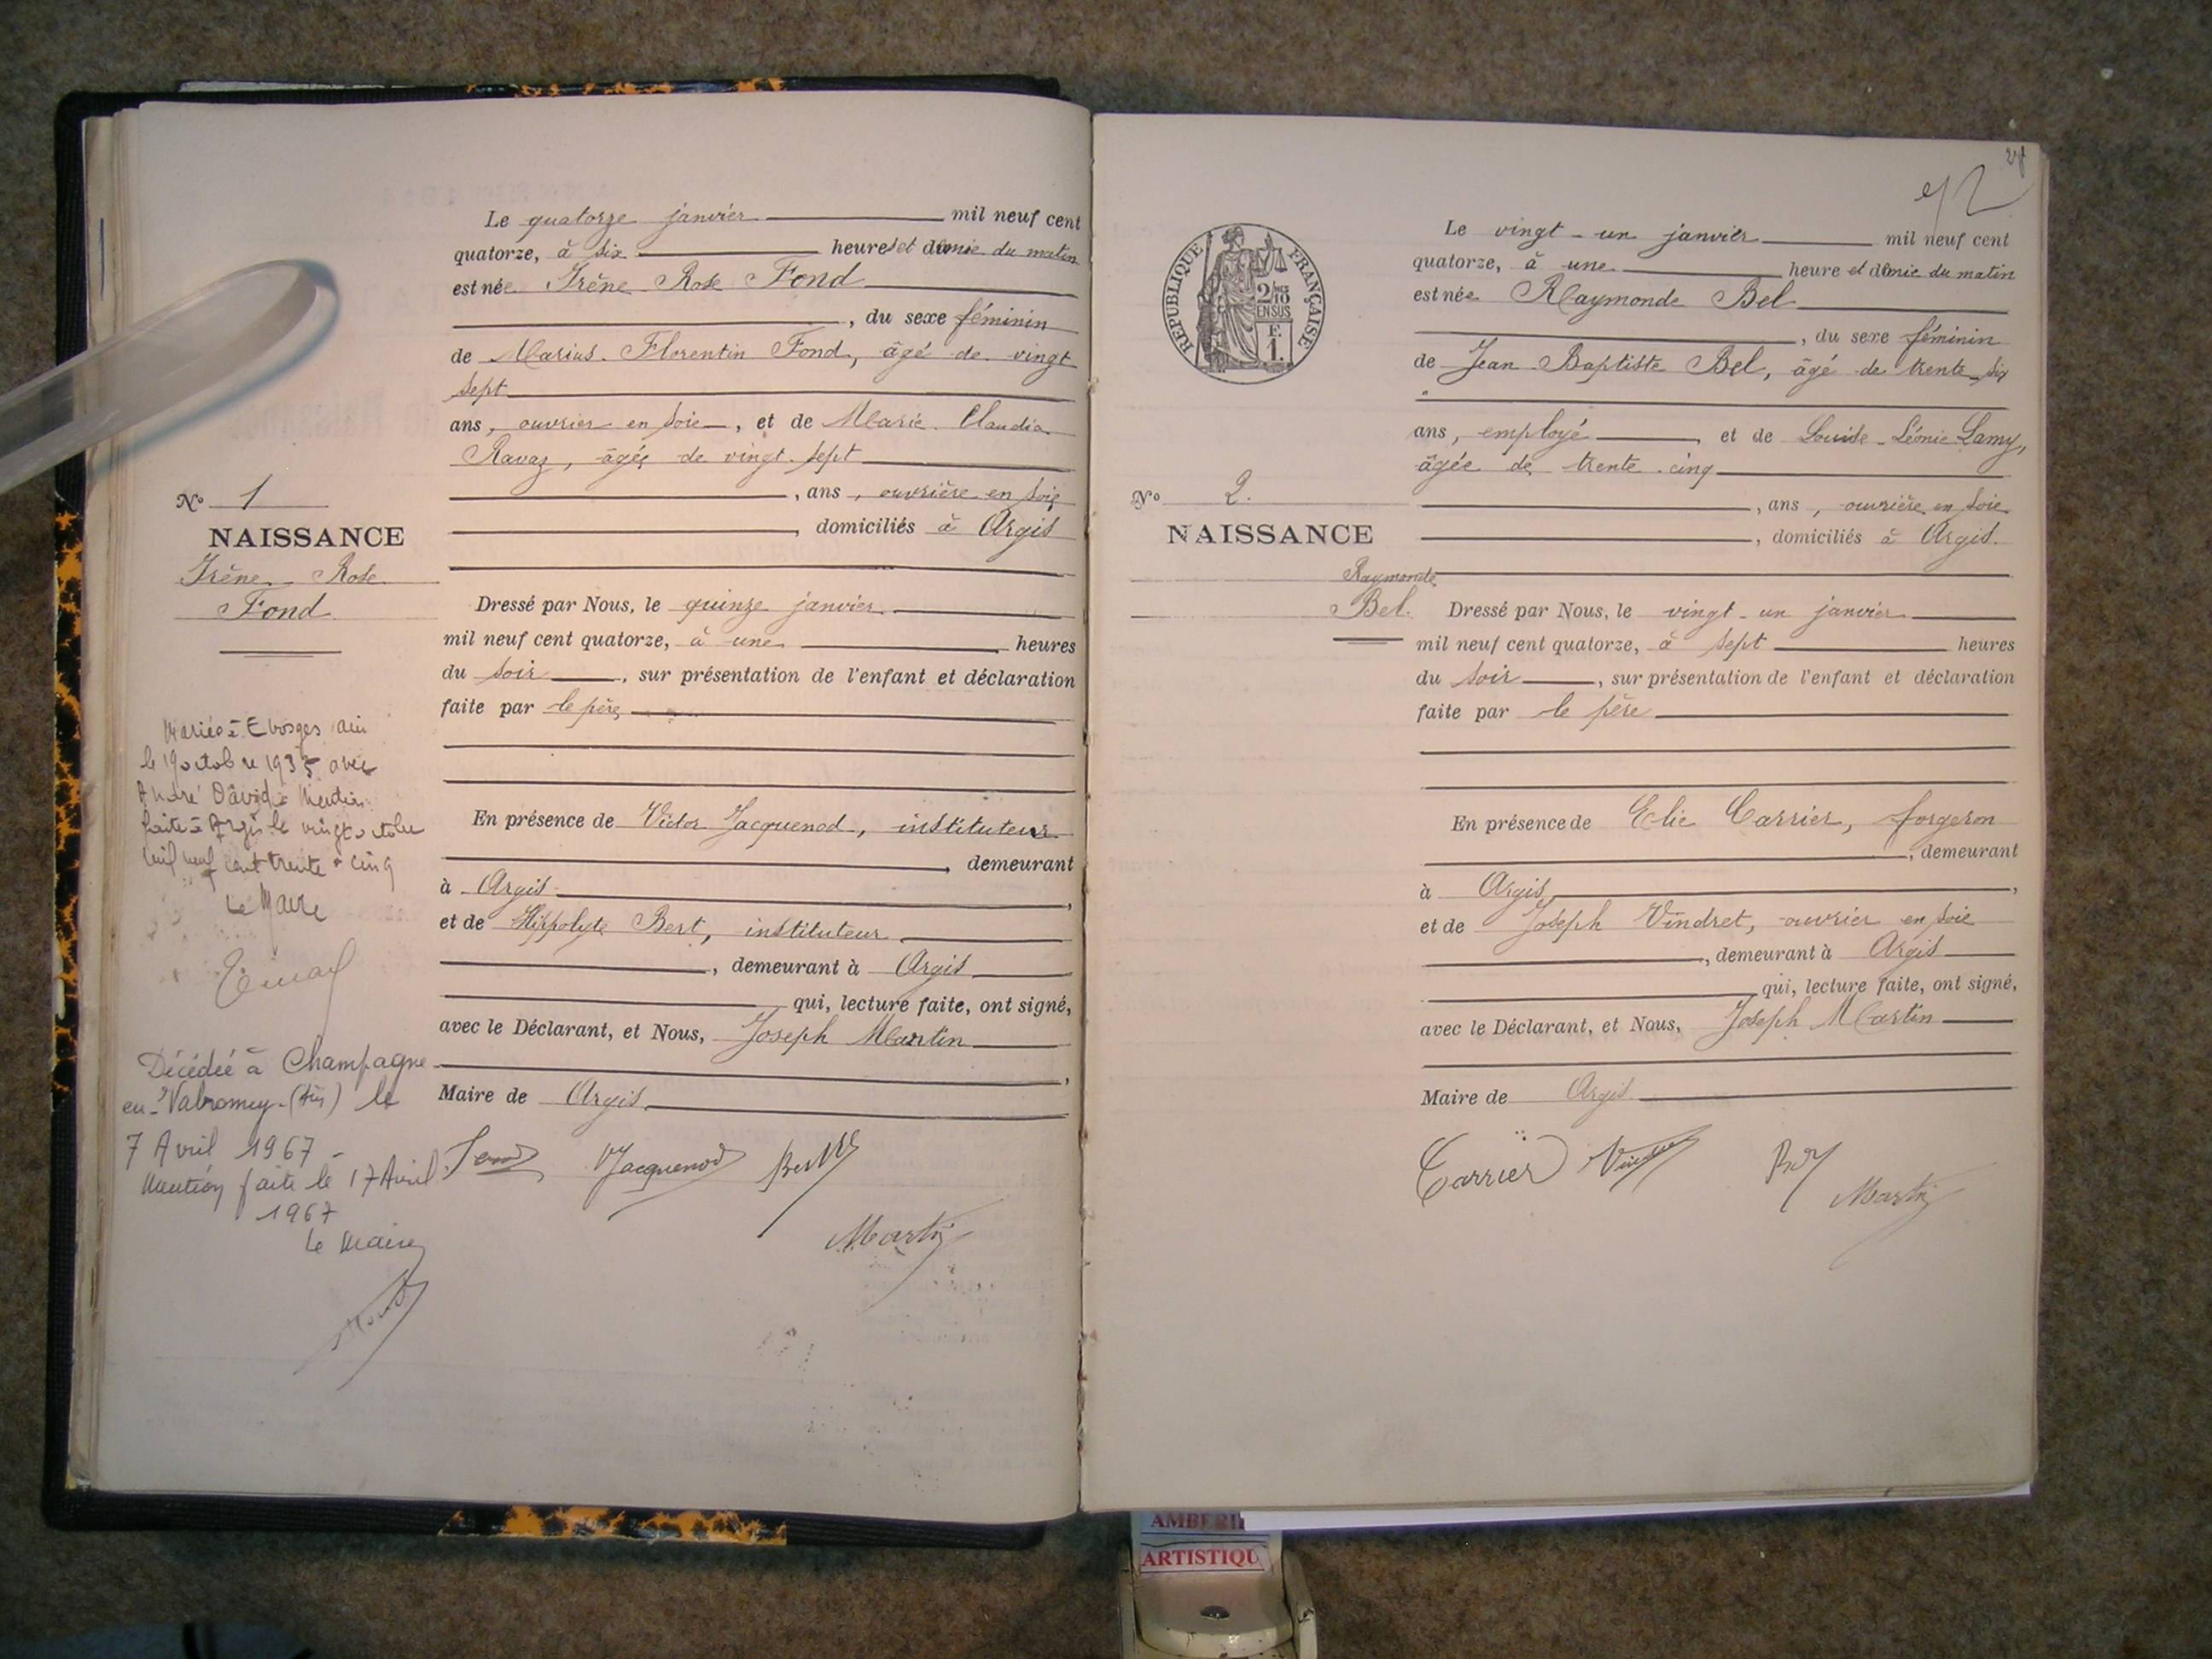 Le quatorze janvier mil neuf cent
quatorze, à six heures et demie du matin
est née Irène Rose Fond
, du sexe féminin
de Marius Florentin Fond, âgé de vingt
sept
ans, ouvrier en soie, et de Marie Claudia
Ravaz, âgée de vingt sept
, ans, ouvrière en soie
, domiciliés à Argis
Nº 1
NAISSANCE
Irène Rose
Fond
Dressé par Nous, le quinze janvier
mil neuf cent quatorze, à une heures
du soir, sur présentation de l'enfant et déclaration
faite par le père
En présence de Victor Jacquenod, instituteur
, demeurant
à Argis,
et de Hippolyte Bert, instituteur
, demeurant à Argis
qui, lecture faite, ont signé,
avec le Déclarant, et Nous, Joseph Martin
,
Maire de Argis
Fond VJacquenod Bert
Martin
Mariée à Evosges ain
le 19 octobre 1935 avec
André David Mention
faite à Argis le vingt octobre
mil neuf cent trente cinq
Le Maire
Décédée à Champagne
en Valromey (Ain) le
7 Avril 1967 -
Mention faite le 17 Avril
1967
Le Maire
28
RÉPUBLIQUE FRANÇAISE
2/10
EN SUS
F.
1.
Le vingt-un janvier mil neuf cent
quatorze, à une heure et demie du matin
est née Raymonde Bel
, du sexe féminin
de Jean Baptiste Bel, âgé de trente-six
ans, employé, et de Louise Léonie Lamy,
âgée de trente-cinq
, ans, ouvrière en soie
, domiciliés à Argis.
Nº 2.
NAISSANCE
Raymonde
Bel.
Dressé par Nous, le vingt-un janvier
mil neuf cent quatorze, à sept heures
du soir, sur présentation de l'enfant et déclaration
faite par le père
En présence de Elie Carrier, forgeron
, demeurant
à Argis,
et de Joseph Vindret, ouvrier en soie
, demeurant à Argis
qui, lecture faite, ont signé,
avec le Déclarant, et Nous, Joseph Martin
Maire de Argis
Carrier Vindret Bel
Martin
ARTISTIQU